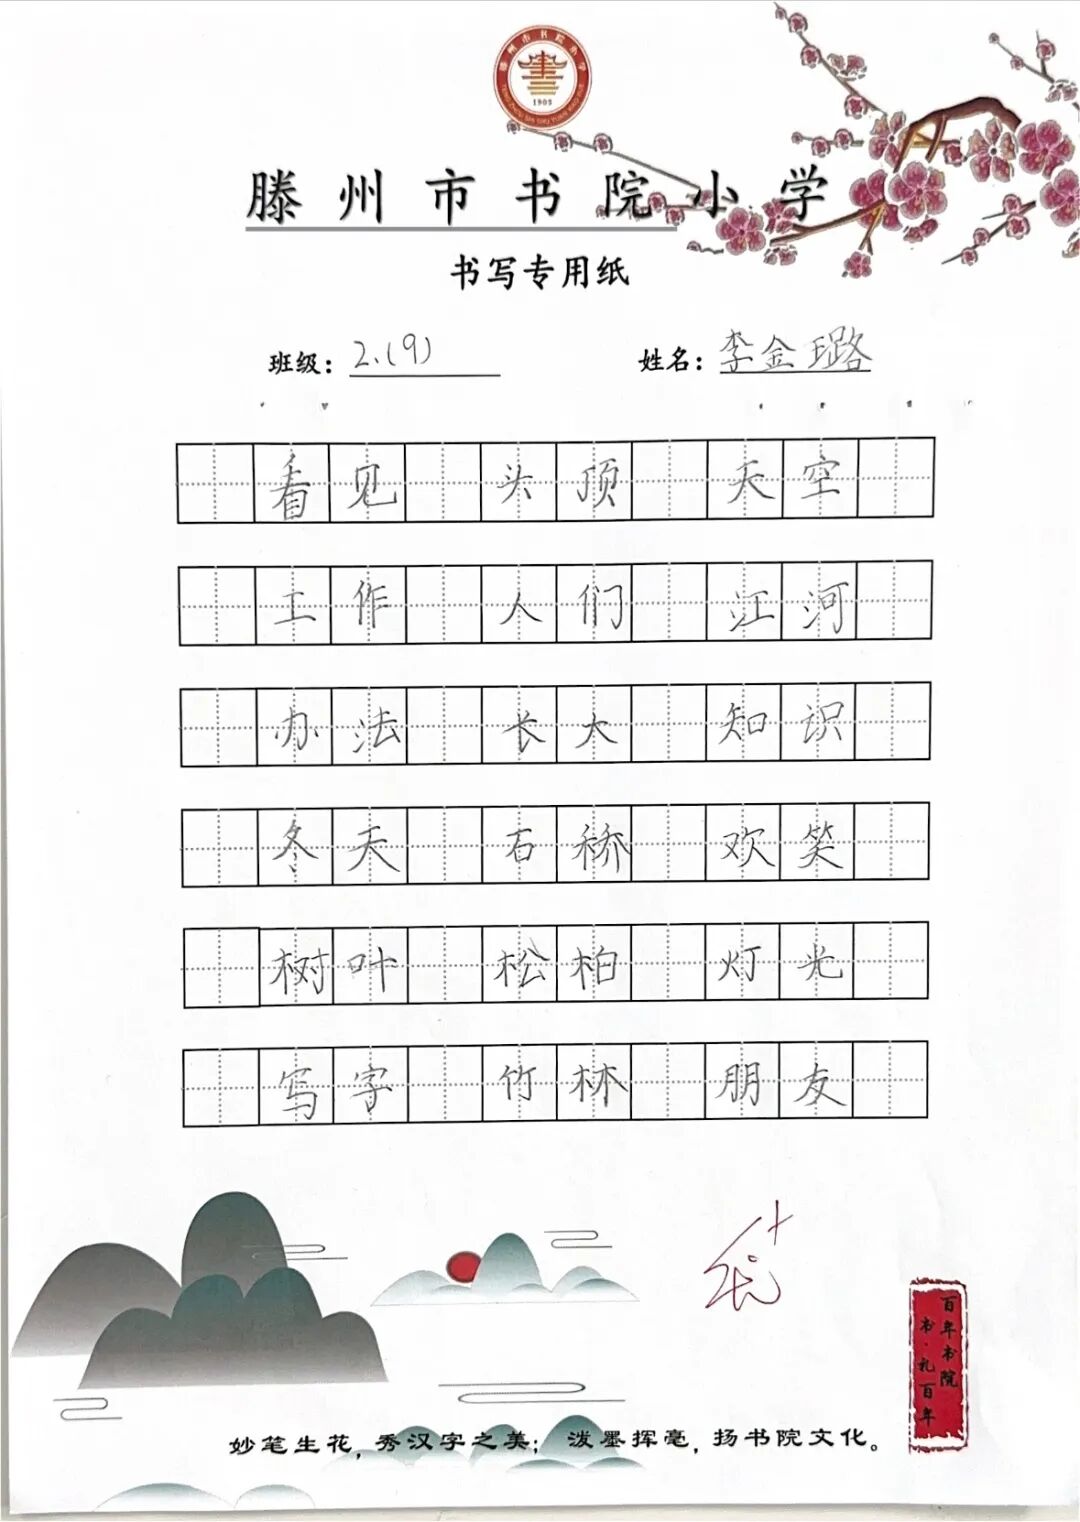 滕州市书院小学
1903
滕州市书院小学
书写专用纸
班级：2.(9) 姓名：李金璐
看见 头顶 天空
工作 人们 江河
办法 长大 知识
冬天 石桥 欢笑
树叶 松柏 灯光
写字 竹林 朋友
优+
百年书院
书·礼百年
妙笔生花，秀汉字之美；泼墨挥毫，扬书院文化。